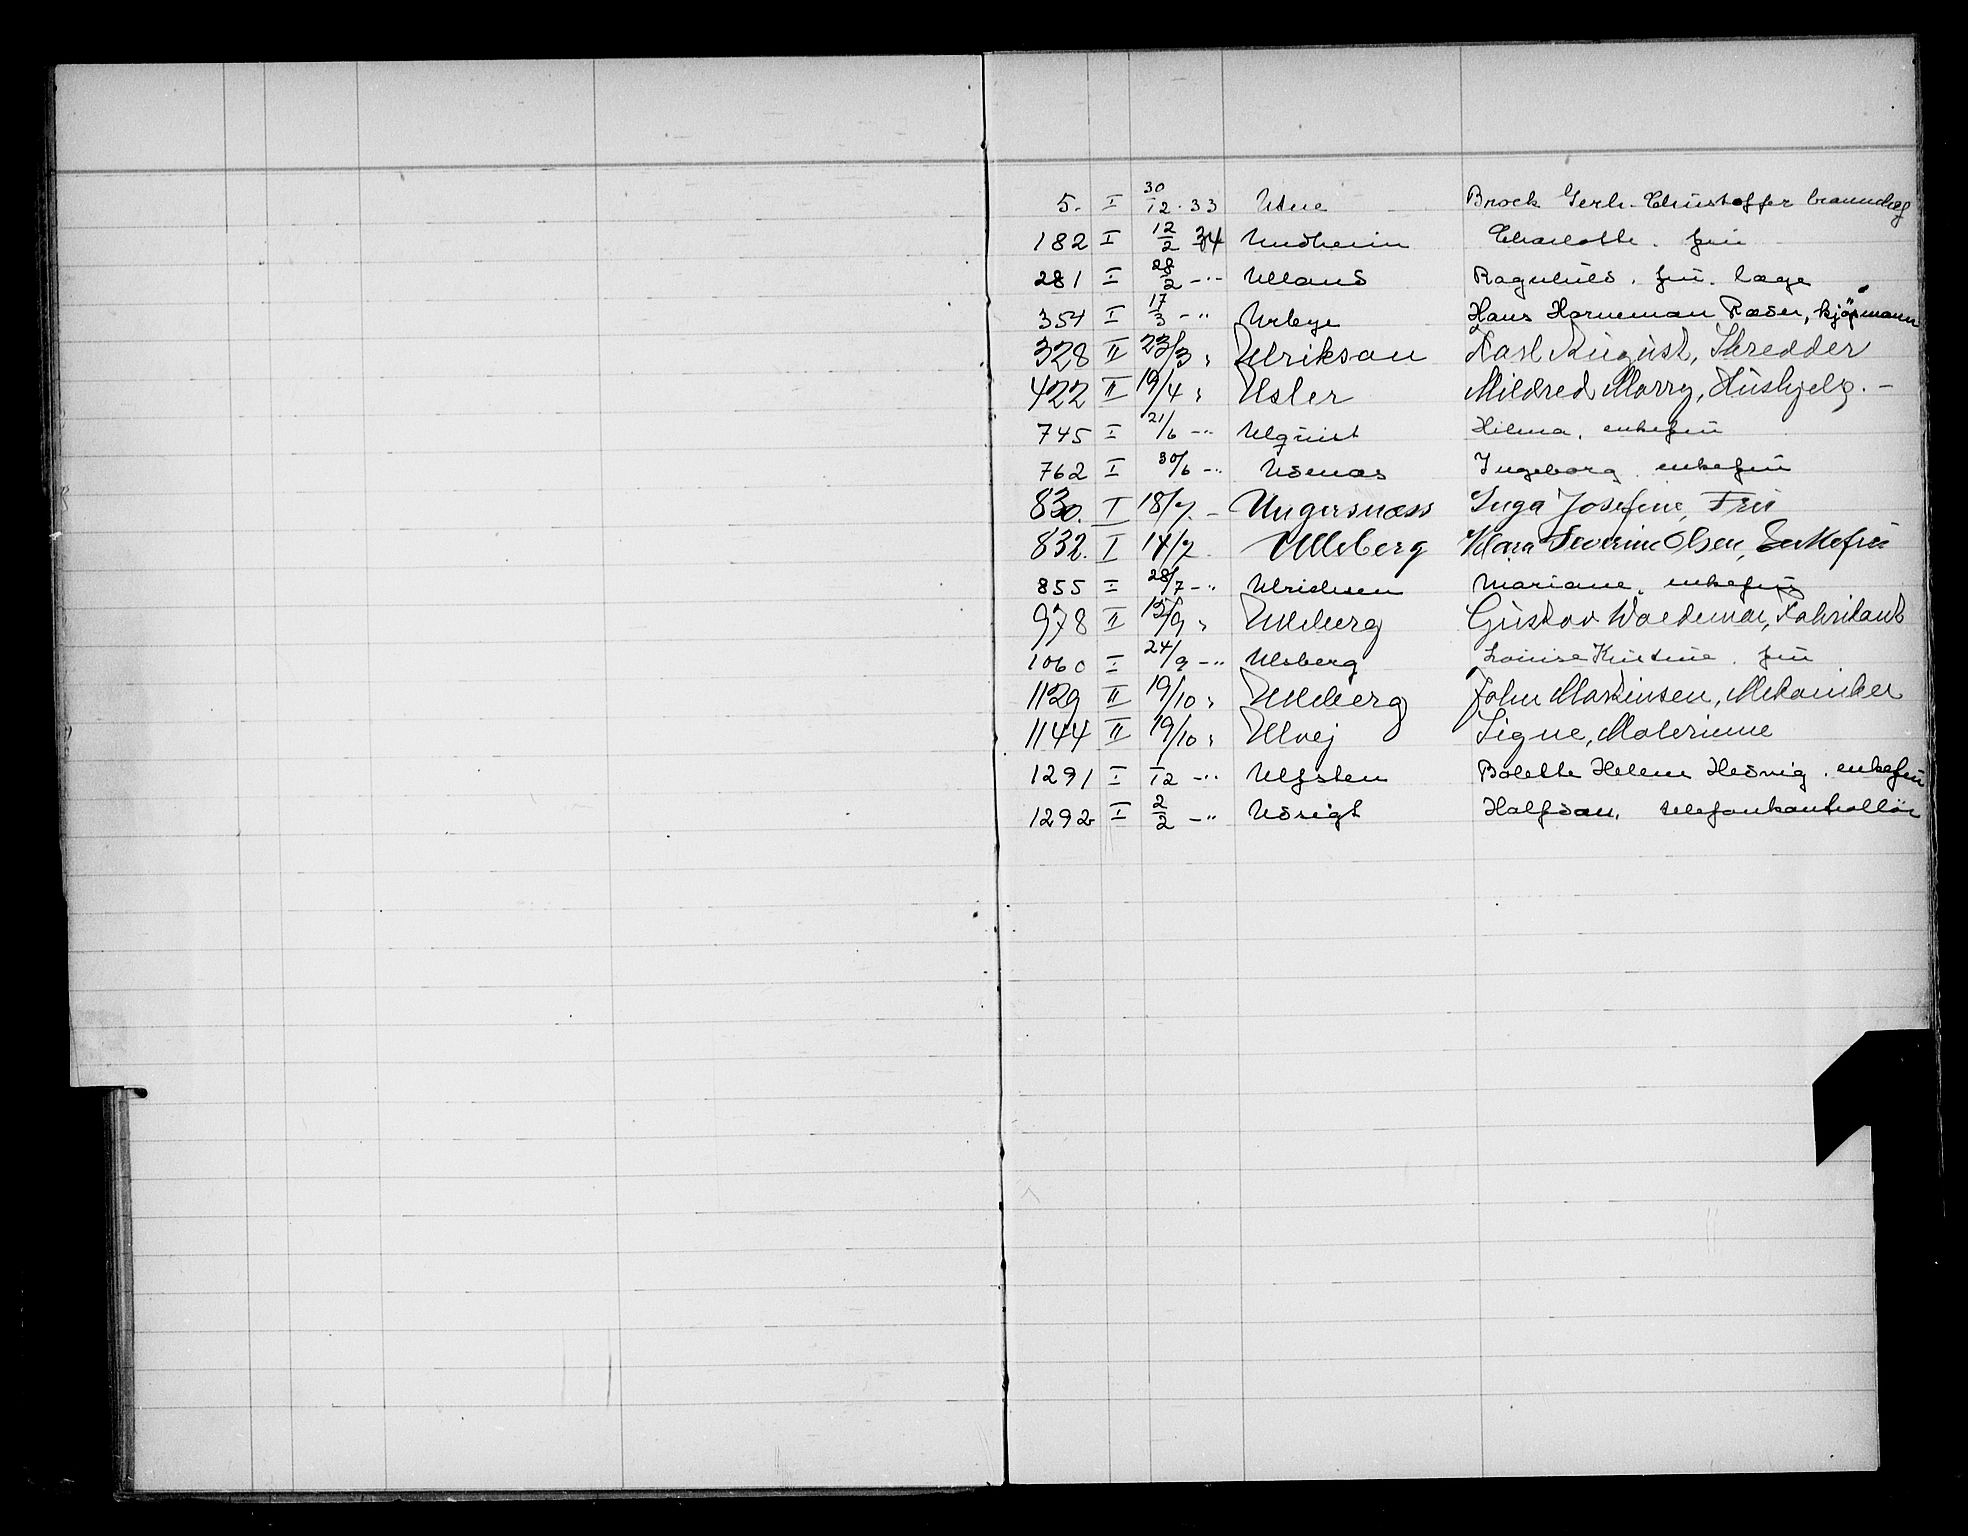 5. I 30/12.33 Utne Brock Gerh. Christoffer
182 I 12/2 34 Undheim Charlotte. frù
281 I 28/2 -"- Ulland Ragnhild. frù. læge
354 I 17/3 -"- Urbye Hans Horneman Ræder, kjøpmann
328 II 23/3 " Ulrikson Karl August, Skredder
422 II 19/4 " Usler Mildred Marry, Hüshjelp. -
745 I 21/6 -"- Ulquist Hilma. enkefrù
762 I 30/6 -"- Udenæs Ingeborg. enkefrù
830. I 18/7. - Ungersnæss Inga Josefine, Frù
832. I 14/7. Ulleberg Klara Severine Olsen, Enkefrù
855 I 28/7 -"- Ulrichsen Mariane. enkefrù
978 II 15/9 " Ulleberg Güstav Waldemar, Fabrikant
1060 I 24/9 -"- Ulsberg Louise Kristine. frù
1129 II 19/10 " Ulleberg John Martinsen, Mekaniker
1144 II 19/10 " Ulvej Signe, Malerinne
1291 I 12 -"- Ulfsten Bolette Helene Hedvig. enkefrù
1292 I 2/2 -"- Udsigt Halfdan. telefonkontrollør